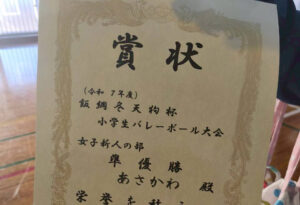 賞状
(令和7年度)
飯綱冬天狗杯
小学生バレーボール大会
女子新人の部
準優勝
あさかわ 殿
栄誉を